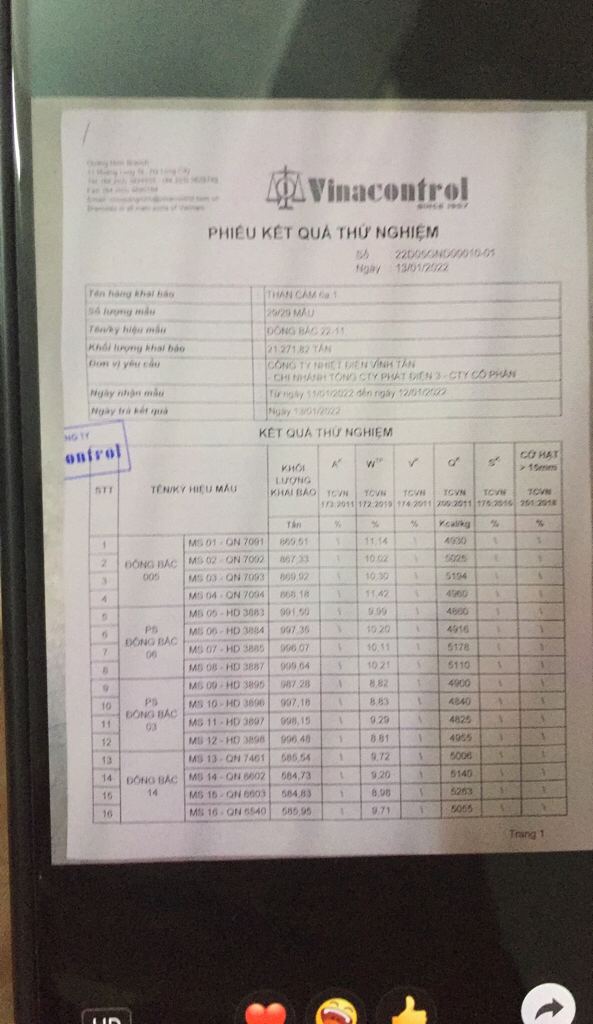 Vinacontrol
SINCE 1957
PHIẾU KẾT QUẢ THỬ NGHIỆM
Số 22D05GND00010-01
Ngày 13/01/2022
Tên hàng khai báo THAN CÁM 6a.1
Số lượng mẫu 29/29 MẪU
Tên/ký hiệu mẫu ĐÔNG BẮC 22-11
Khối lượng khai báo 21.271,82 TẤN
Đơn vị yêu cầu CÔNG TY NHIỆT ĐIỆN VĨNH TÂN
- CHI NHÁNH TỔNG CTY PHÁT ĐIỆN 3 - CTY CỔ PHẦN
Ngày nhận mẫu Từ ngày 11/01/2022 đến ngày 12/01/2022
Ngày trả kết quả Ngày 13/01/2022
NG TY
ontrol
KẾT QUẢ THỬ NGHIỆM
STT TÊN/KÝ HIỆU MẪU KHỐI LƯỢNG KHAI BÁO A W V Q S CỠ HẠT > 15mm
TCVN 173:2011 TCVN 172:2019 TCVN 174:2011 TCVN 200:2011 TCVN 175:2015 TCVN 251:2018
Tấn % % % Kcal/kg % %
1 MS 01 - QN 7091 869,51 \ 11,14 \ 4930 \ \
2 ĐÔNG BẮC 005 MS 02 - QN 7092 867,33 \ 10,02 \ 5025 \ \
3 MS 03 - QN 7093 869,92 \ 10,30 \ 5154 \ \
4 MS 04 - QN 7094 868,18 \ 11,42 \ 4960 \ \
5 MS 05 - HD 3883 991,50 \ 9,99 \ 4860 \ \
6 PS ĐÔNG BẮC 06 MS 06 - HD 3884 997,35 \ 10,20 \ 4916 \ \
7 MS 07 - HD 3885 996,07 \ 10,11 \ 5178 \ \
8 MS 08 - HD 3887 999,64 \ 10,21 \ 5110 \ \
9 MS 09 - HD 3895 987,28 \ 8,82 \ 4900 \ \
10 PS ĐÔNG BẮC 03 MS 10 - HD 3896 997,18 \ 8,83 \ 4840 \ \
11 MS 11 - HD 3897 998,15 \ 9,29 \ 4825 \ \
12 MS 12 - HD 3898 996,48 \ 8,81 \ 4955 \ \
13 MS 13 - QN 7461 585,54 \ 9,72 \ 5006 \ \
14 ĐÔNG BẮC 14 MS 14 - QN 6602 584,73 \ 9,20 \ 5140 \ \
15 MS 15 - QN 6603 584,83 \ 8,98 \ 5263 \ \
16 MS 16 - QN 6540 585,95 \ 9,71 \ 5055 \ \
Trang 1